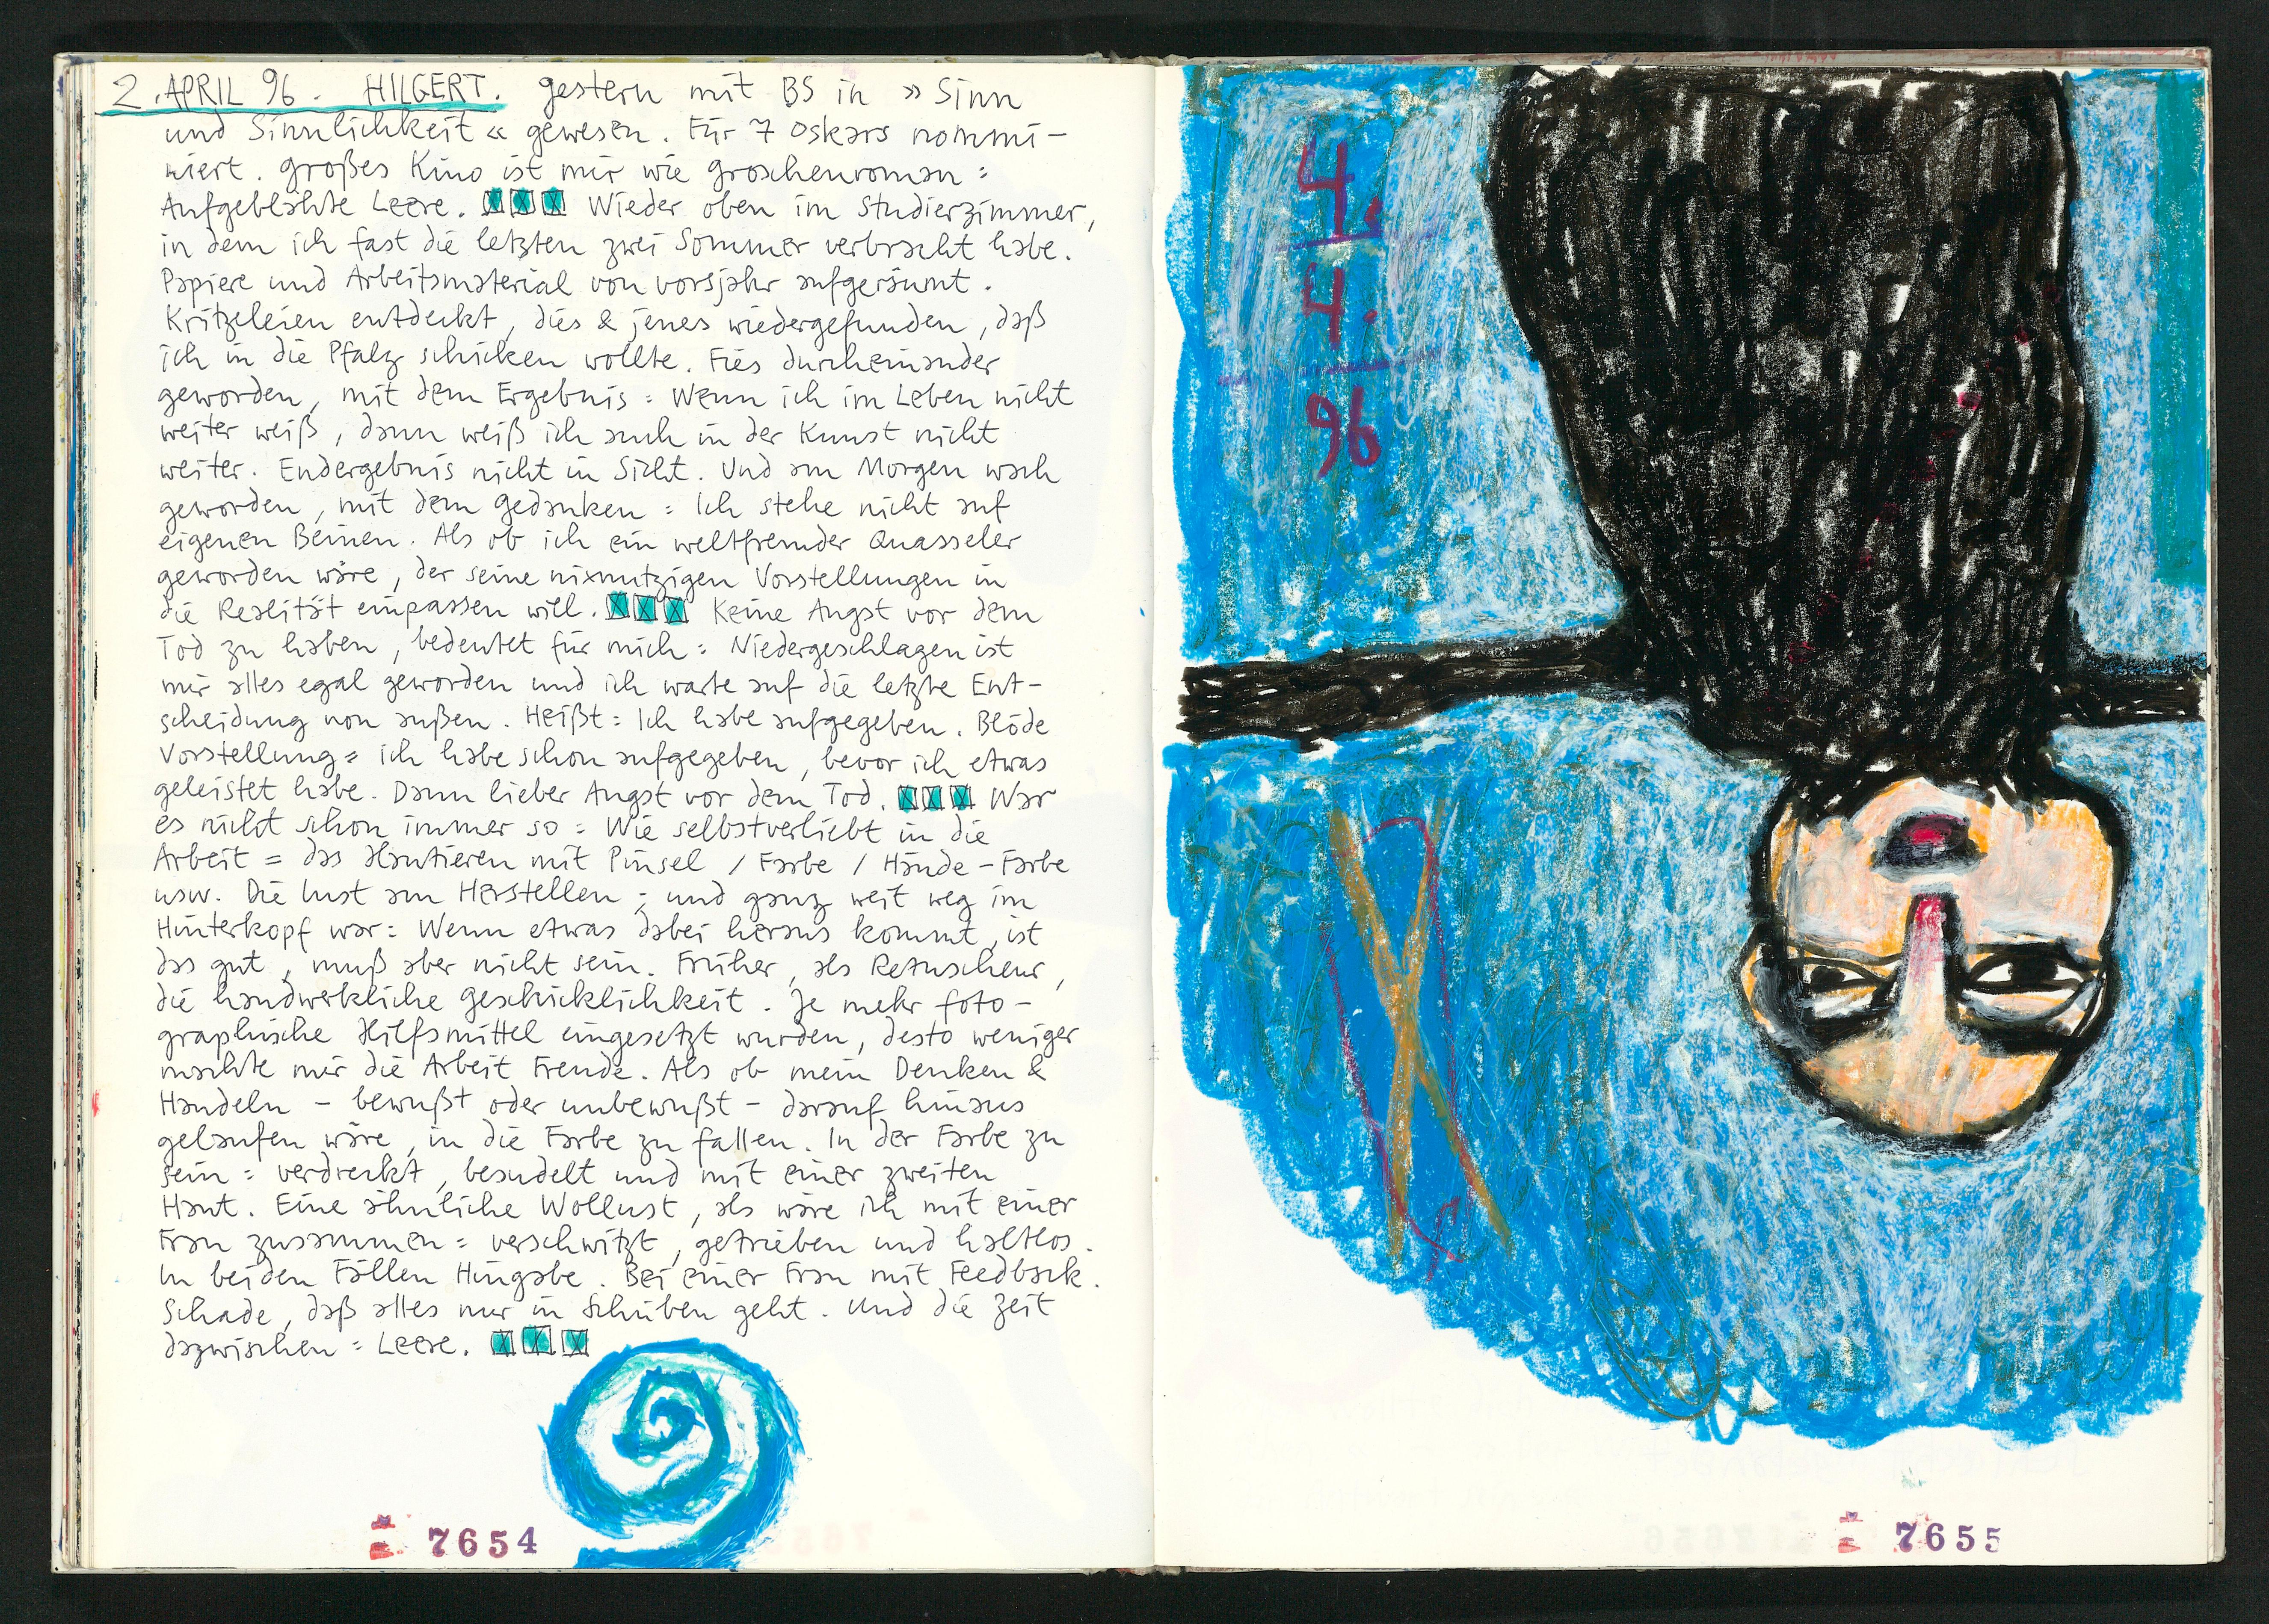 2. APRIL 96. HILGERT. gestern mit BS in » Sinn
und Sinnlichkeit « gewesen. Für 7 Oskars nommi-
niert. großes Kino ist mir wie Groschenroman =
Aufgeblähte Leere. XXX Wieder oben im Studierzimmer,
in dem ich fast die letzten zwei Sommer verbracht habe.
Papiere und Arbeitsmaterial von vorsjahr aufgeräumt.
Kritzeleien entdeckt, dies & jenes wiedergefunden, daß
ich in die Pfalz schicken wollte. Fies durcheinander
geworden, mit dem Ergebnis = Wenn ich im Leben nicht
weiter weiß, dann weiß ich auch in der Kunst nicht
weiter. Endergebnis nicht in Sicht. Und am Morgen wach
geworden, mit dem Gedanken = Ich stehe nicht auf
eigenen Beinen. Als ob ich ein weltfremder Quasseler
geworden wäre, der seine nixnutzigen Vorstellungen in
die Realität einpassen will. XXX Keine Angst vor dem
Tod zu haben, bedeutet für mich = Niedergeschlagen ist
mir alles egal geworden und ich warte auf die letzte Ent-
scheidung von außen. Heißt = Ich habe aufgegeben. Blöde
Vorstellung = ich habe schon aufgegeben, bevor ich etwas
geleistet habe. Dann lieber Angst vor dem Tod. XXX War
es nicht schon immer so = Wie selbstverliebt in die
Arbeit = das Hantieren mit Pinsel / Farbe / Hände-Farbe
usw. Die Lust am Herstellen ; und ganz weit weg im
Hinterkopf war = Wenn etwas dabei heraus kommt, ist
das gut, muß aber nicht sein. Früher, als Retuscheur,
die handwerkliche Geschicklichkeit. Je mehr foto-
graphische Hilfsmittel eingesetzt wurden, desto weniger
machte mir die Arbeit Freude. Als ob mein Denken &
Handeln - bewußt oder unbewußt - darauf hinaus
gelaufen wäre, in die Farbe zu fallen. In der Farbe zu
sein = verdreckt, besudelt und mit einer zweiten
Haut. Eine ähnliche Wollust, als wäre ich mit einer
Frau zusammen = verschwitzt, getrieben und haltlos.
In beiden Fällen Hingabe. Bei einer Frau mit Feedback.
Schade, daß alles nur in Schüben geht. Und die Zeit
dazwischen = Leere. XXX
7654
4.
4.
96
7655